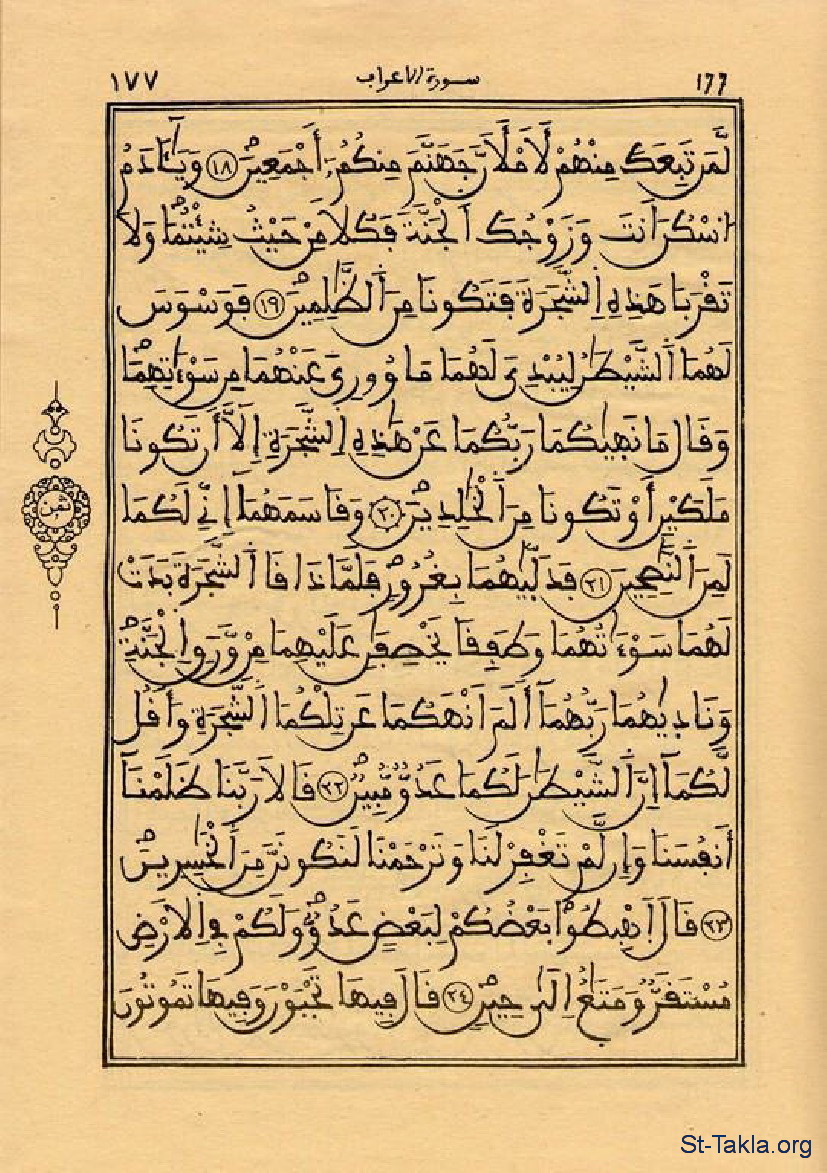 ١٧٧ سورة الاعراب ١٦٦
لَّمَن تَبِعَكَ مِنْهُمْ لَأَمْلَأَنَّ جَهَنَّمَ مِنكُمُۥٓ أَجْمَعِينَ ١٨ وَيَٰٓـَٔادَمُ
اَسْكُنَ اَنتَ وَزَوْجُكَ اَلْجَنَّةَ ڢَكُلَا مِنْ حَيْثُ شِئْتُمَا وَلَا
تَڧْرَبَا هَٰذِهِ اِلشَّجَرَةَ ڢَتَكُونَا مِنَ اَلظَّٰلِمِينَ ١٩ ڢَوَسْوَسَ
لَهُمَا اَلشَّيْطَٰنُ لِيُبْدِىَ لَهُمَا مَا وُۥرِىَ عَنْهُمَا مِن سَوْءَٰتِهِمَا
وَڧَالَ مَا نَهَىٰكُمَا رَبُّكُمَا عَنْ هَٰذِهِ اِلشَّجَرَةِ إِلَّآ أَن تَكُونَا
مَلَكَيْنِ أَوْ تَكُونَا مِنَ اَلْخَٰلِدِينَ ٢٠ وَڧَاسَمَهُمَآ إِنِّے لَكُمَا
لَمِنَ اَلنَّٰصِحِينَ ٢١ ڢَدَلَّىٰهُمَا بِغُرُورٍ ڢَلَمَّا ذَاڧَا اَلشَّجَرَةَ بَدَتْ
لَهُمَا سَوْءَٰتُهُمَا وَطَڢِڧَا يَخْصِڢَٰنِ عَلَيْهِمَا مِنْ وَّرَقِ اِلْجَنَّةِ
وَنَادَىٰهُمَا رَبُّهُمَآ أَلَمَ اَنْهَكُمَا عَن تِلْكُمَا اَلشَّجَرَةِ وَأَڧُل
لَّكُمَآ إِنَّ اَلشَّيْطَٰنَ لَكُمَا عَدُوٌّ مُّبِينٌ ٢٢ ڧَالَا رَبَّنَا ظَلَمْنَآ
أَنڢُسَنَا وَإِن لَّمْ تَغْڢِرْ لَنَا وَتَرْحَمْنَا لَنَكُونَنَّ مِنَ اَلْخَٰسِرِينَ
٢٣ ڧَالَ اَهْبِطُوا۟ بَعْضُكُمْ لِبَعْضٍ عَدُوٌّ وَلَكُمْ ڢِے اِلَارْضِ
مُسْتَڧَرٌّ وَمَتَٰعٌ اِلَىٰ حِينٍ ٢٤ ڧَالَ ڢِيهَا تَحْيَوْنَ وَڢِيهَا تَمُوتُونَ
ثمن
St-Takla.org